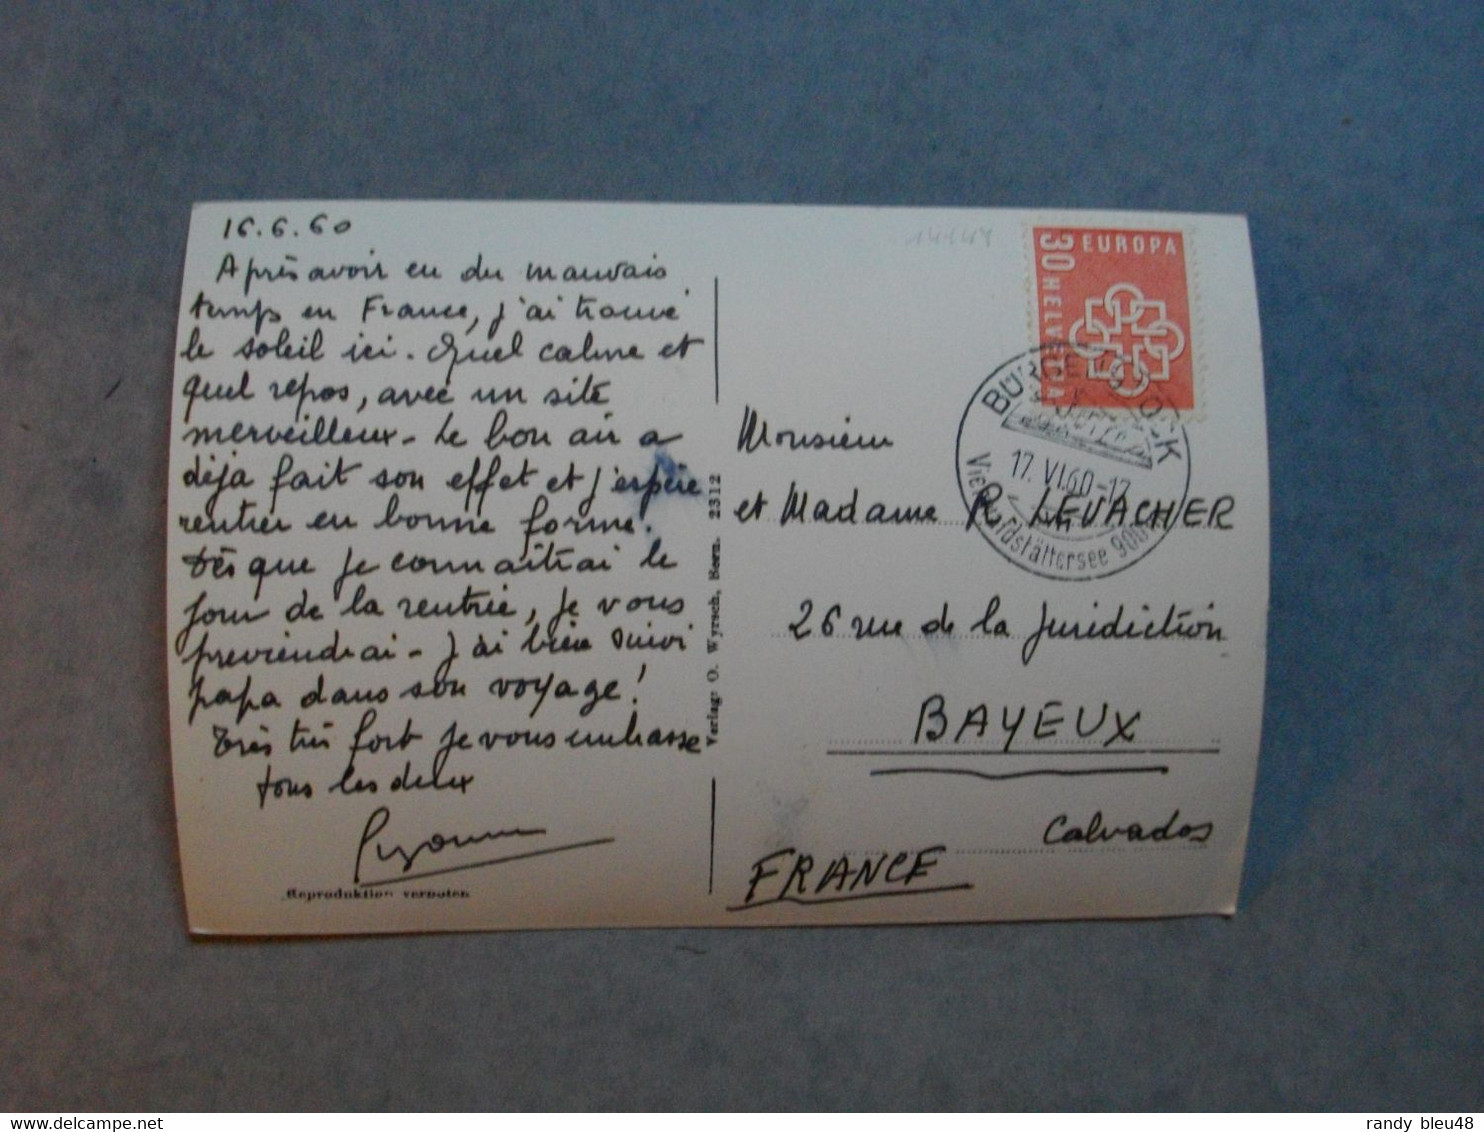 16.6.60
Après avoir eu du mauvais
temps en France, j'ai trouvé
le soleil ici. Quel calme et
quel repos, avec un site
merveilleux - Le bon air a
déja fait son effet et j'espère
rentrer en bonne forme.
Dès que je connaîtrai le
jour de la rentrée, je vous
previendrai - J'ai bien suivi
papa dans son voyage!
Très très fort je vous embrasse
tous les deux
Reproduktion verboten
Verlag: O. Wyrsch, Bern. 2312
EUROPA
30 HELVETIA
BÜRGENSTOCK
17. VI. 60-12
Vierwaldstättersee 900
Monsieur
et Madame R. LEVACHER
26 rue de la Juridiction
BAYEUX
Calvados
FRANCE
randy bleu48